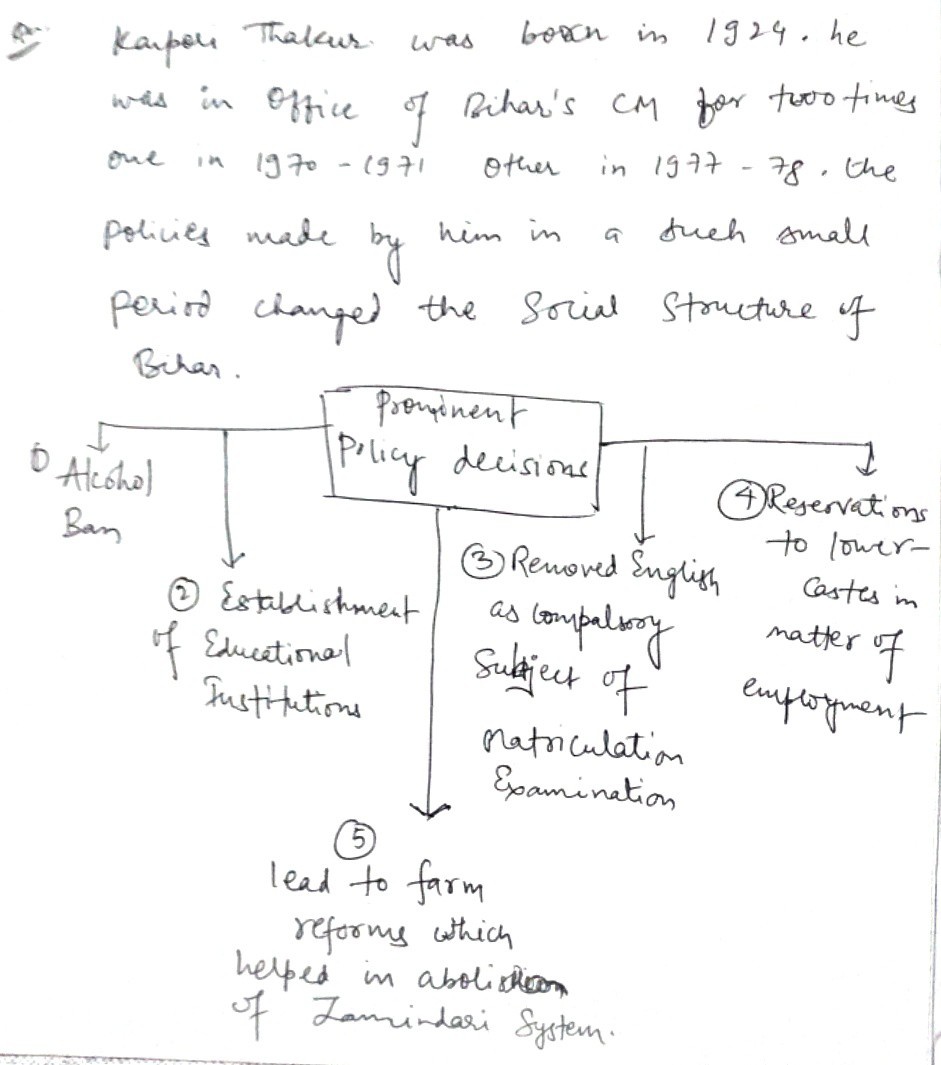 Ans:
Karpori Thakur was born in 1924. he
was in Office of Bihar's CM for two times
one in 1970 - 1971 Other in 1977 - 78. the
policies made by him in a such small
period changed the Social Structure of
Bihar.
Prominent
Policy decisions
① Alcohol
Ban
② Establishment
of Educational
Institutions
③ Removed English
as compalsory
Subject of
Matriculation
Examination
④ Reservations
to lower-
Castes in
matter of
employment
⑤
lead to farm
reforms which
helped in abolition
of Zamindari System.